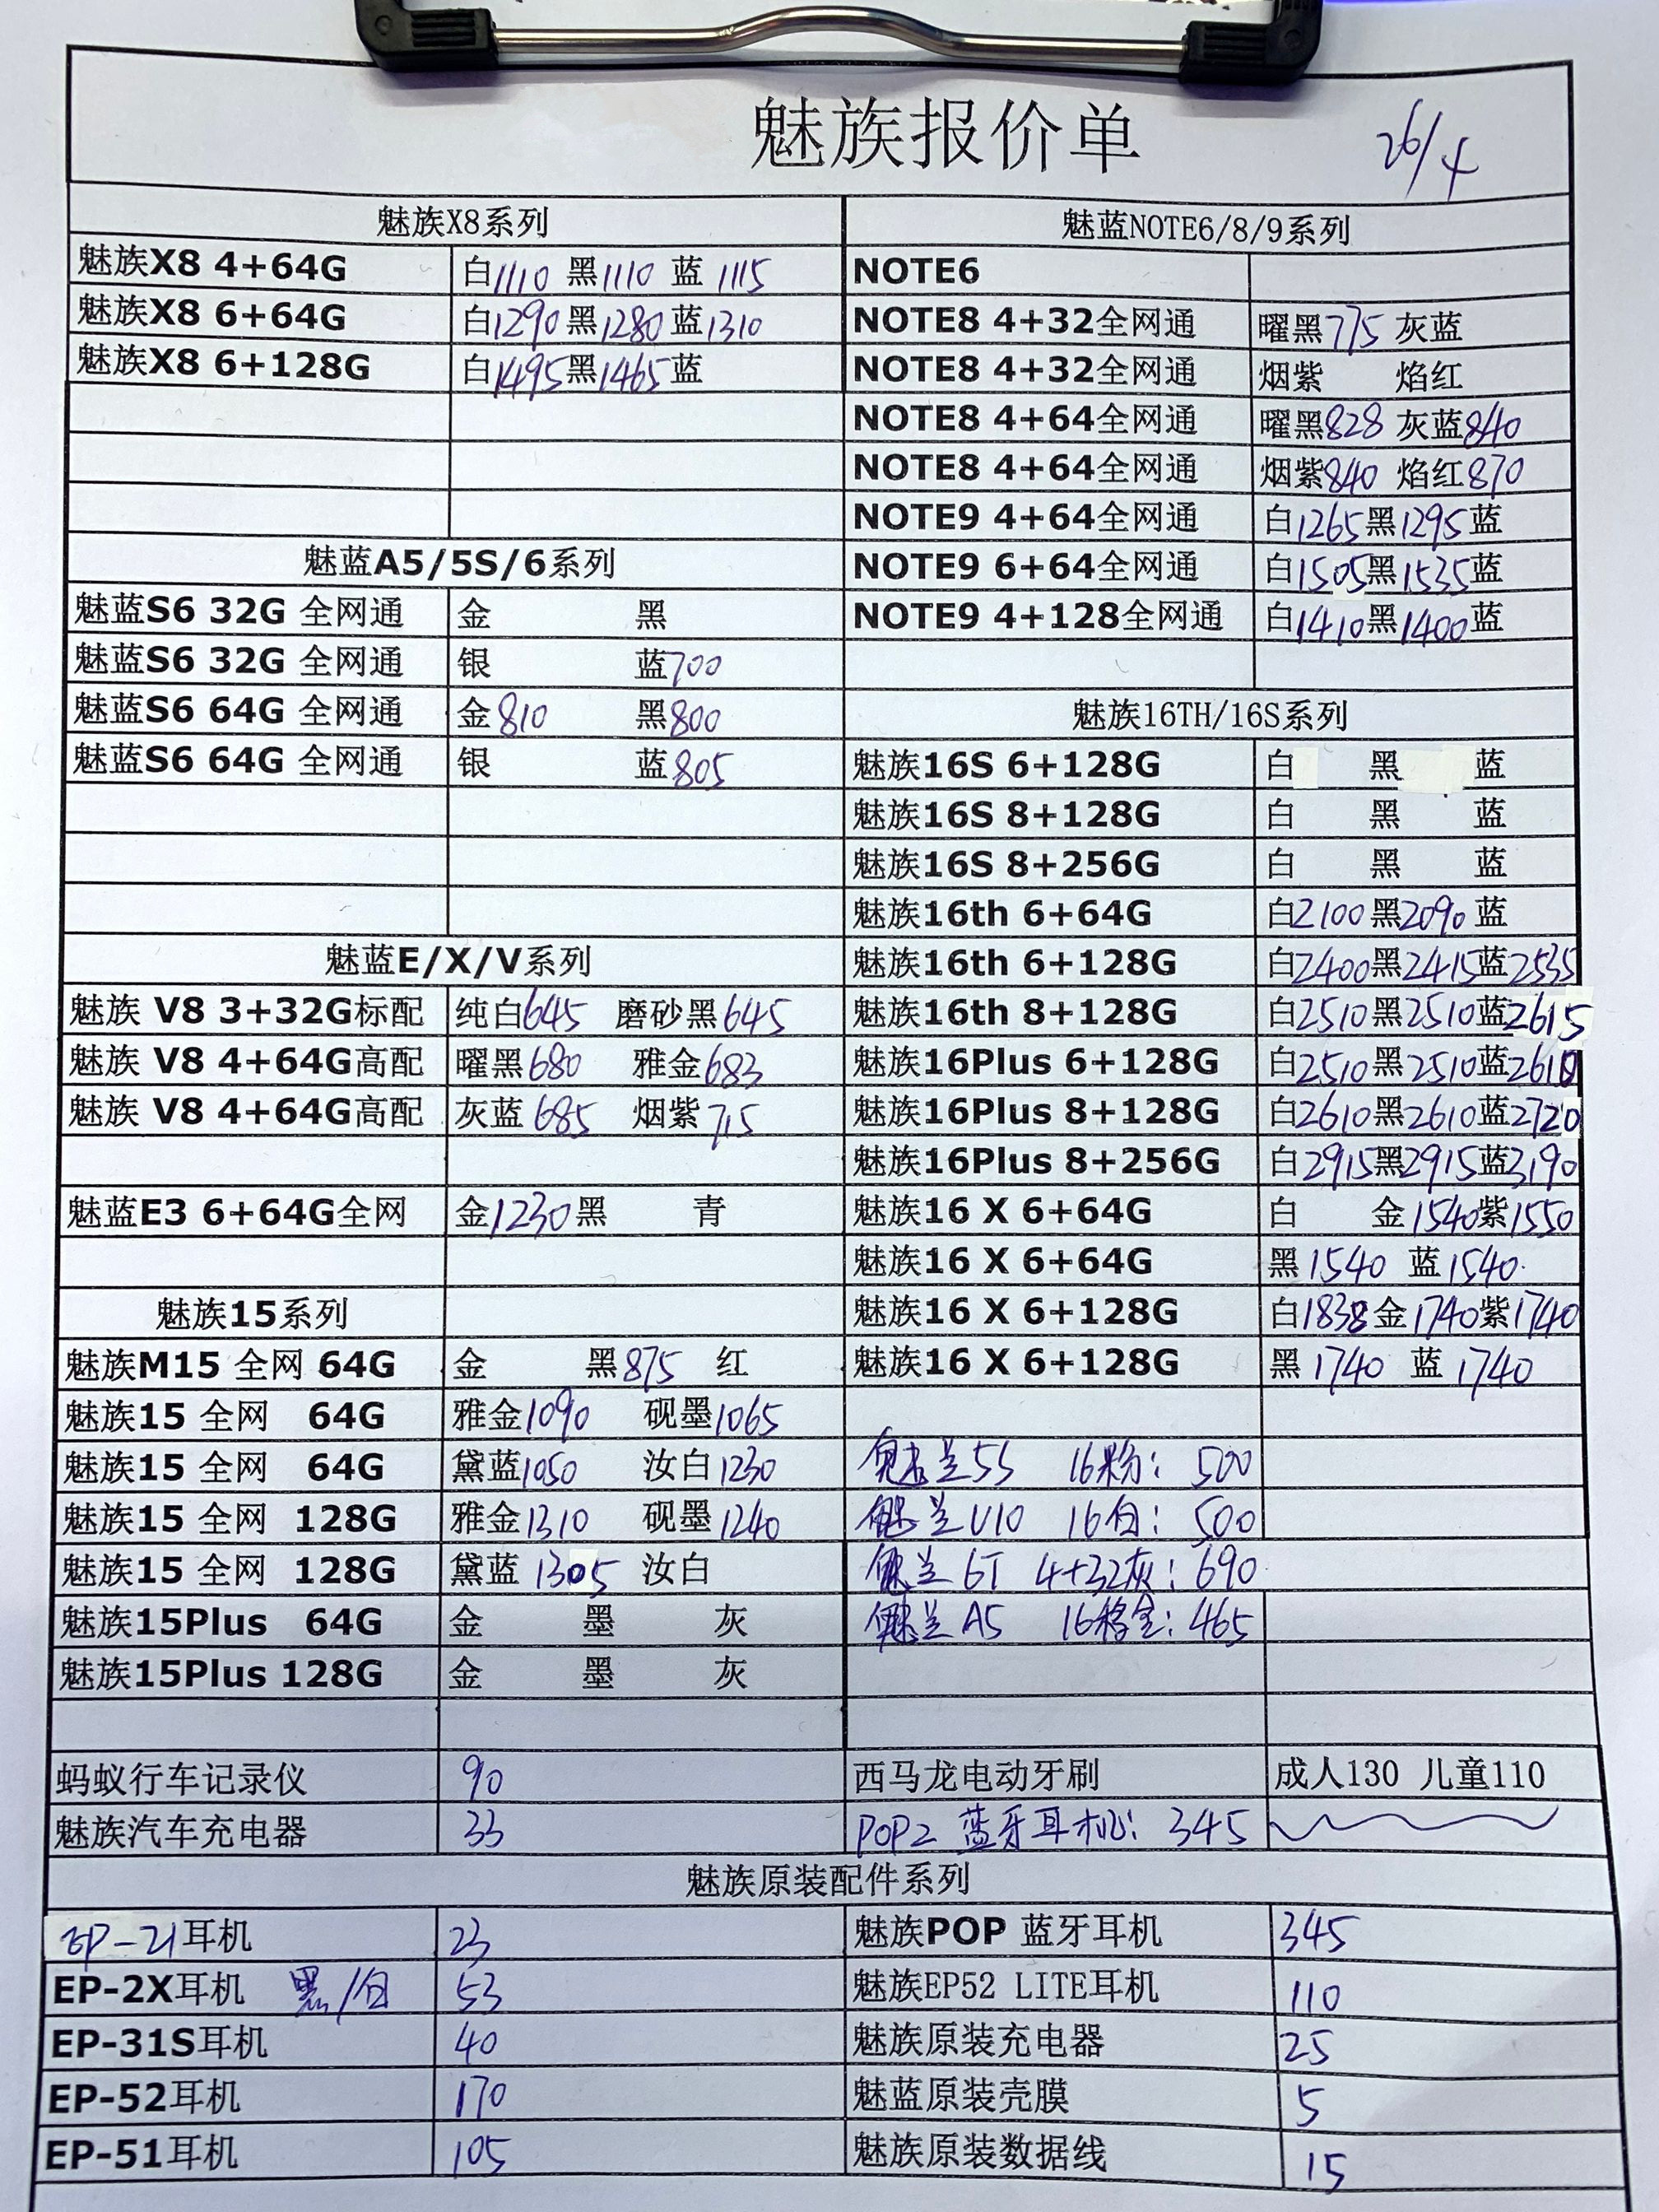 魅族报价单 26/4
魅族X8系列
魅族X8 4+64G 白1110 黑1110 蓝1115
魅族X8 6+64G 白1290 黑1280 蓝1310
魅族X8 6+128G 白1495 黑1465 蓝
魅蓝A5/5S/6系列
魅蓝S6 32G 全网通 金 黑
魅蓝S6 32G 全网通 银 蓝700
魅蓝S6 64G 全网通 金810 黑800
魅蓝S6 64G 全网通 银 蓝805
魅蓝E/X/V系列
魅族 V8 3+32G标配 纯白645 磨砂黑645
魅族 V8 4+64G高配 曜黑680 雅金683
魅族 V8 4+64G高配 灰蓝685 烟紫715
魅蓝E3 6+64G全网 金1230 黑 青
魅族15系列
魅族M15 全网 64G 金 黑875 红
魅族15 全网 64G 雅金1090 砚墨1065
魅族15 全网 64G 黛蓝1050 汝白1230
魅族15 全网 128G 雅金1310 砚墨1240
魅族15 全网 128G 黛蓝1305 汝白
魅族15Plus 64G 金 墨 灰
魅族15Plus 128G 金 墨 灰
蚂蚁行车记录仪 90
魅族汽车充电器 33
魅蓝NOTE6/8/9系列
NOTE6
NOTE8 4+32全网通 曜黑775 灰蓝
NOTE8 4+32全网通 烟紫 焰红
NOTE8 4+64全网通 曜黑828 灰蓝840
NOTE8 4+64全网通 烟紫840 焰红870
NOTE9 4+64全网通 白1265 黑1295 蓝
NOTE9 6+64全网通 白1505 黑1535 蓝
NOTE9 4+128全网通 白1410 黑1400 蓝
魅族16TH/16S系列
魅族16S 6+128G 白 黑 蓝
魅族16S 8+128G 白 黑 蓝
魅族16S 8+256G 白 黑 蓝
魅族16th 6+64G 白2100 黑2090 蓝
魅族16th 6+128G 白2400 黑2415 蓝2535
魅族16th 8+128G 白2510 黑2510 蓝2615
魅族16Plus 6+128G 白2510 黑2510 蓝2610
魅族16Plus 8+128G 白2610 黑2610 蓝2720
魅族16Plus 8+256G 白2915 黑2915 蓝3190
魅族16 X 6+64G 白 金1540 紫1550
魅族16 X 6+64G 黑1540 蓝1540
魅族16 X 6+128G 白1838 金1740 紫1740
魅族16 X 6+128G 黑1740 蓝1740
魅兰5S 16粉：500
魅兰U10 16白：500
魅兰6T 4+32灰：690
魅兰A5 16移金：465
西马龙电动牙刷 成人130 儿童110
POP2 蓝牙耳机：345
魅族原装配件系列
EP-21耳机 23
EP-2X耳机 黑/白 53
EP-31S耳机 40
EP-52耳机 170
EP-51耳机 105
魅族POP 蓝牙耳机 345
魅族EP52 LITE耳机 110
魅族原装充电器 25
魅蓝原装壳膜 5
魅族原装数据线 15